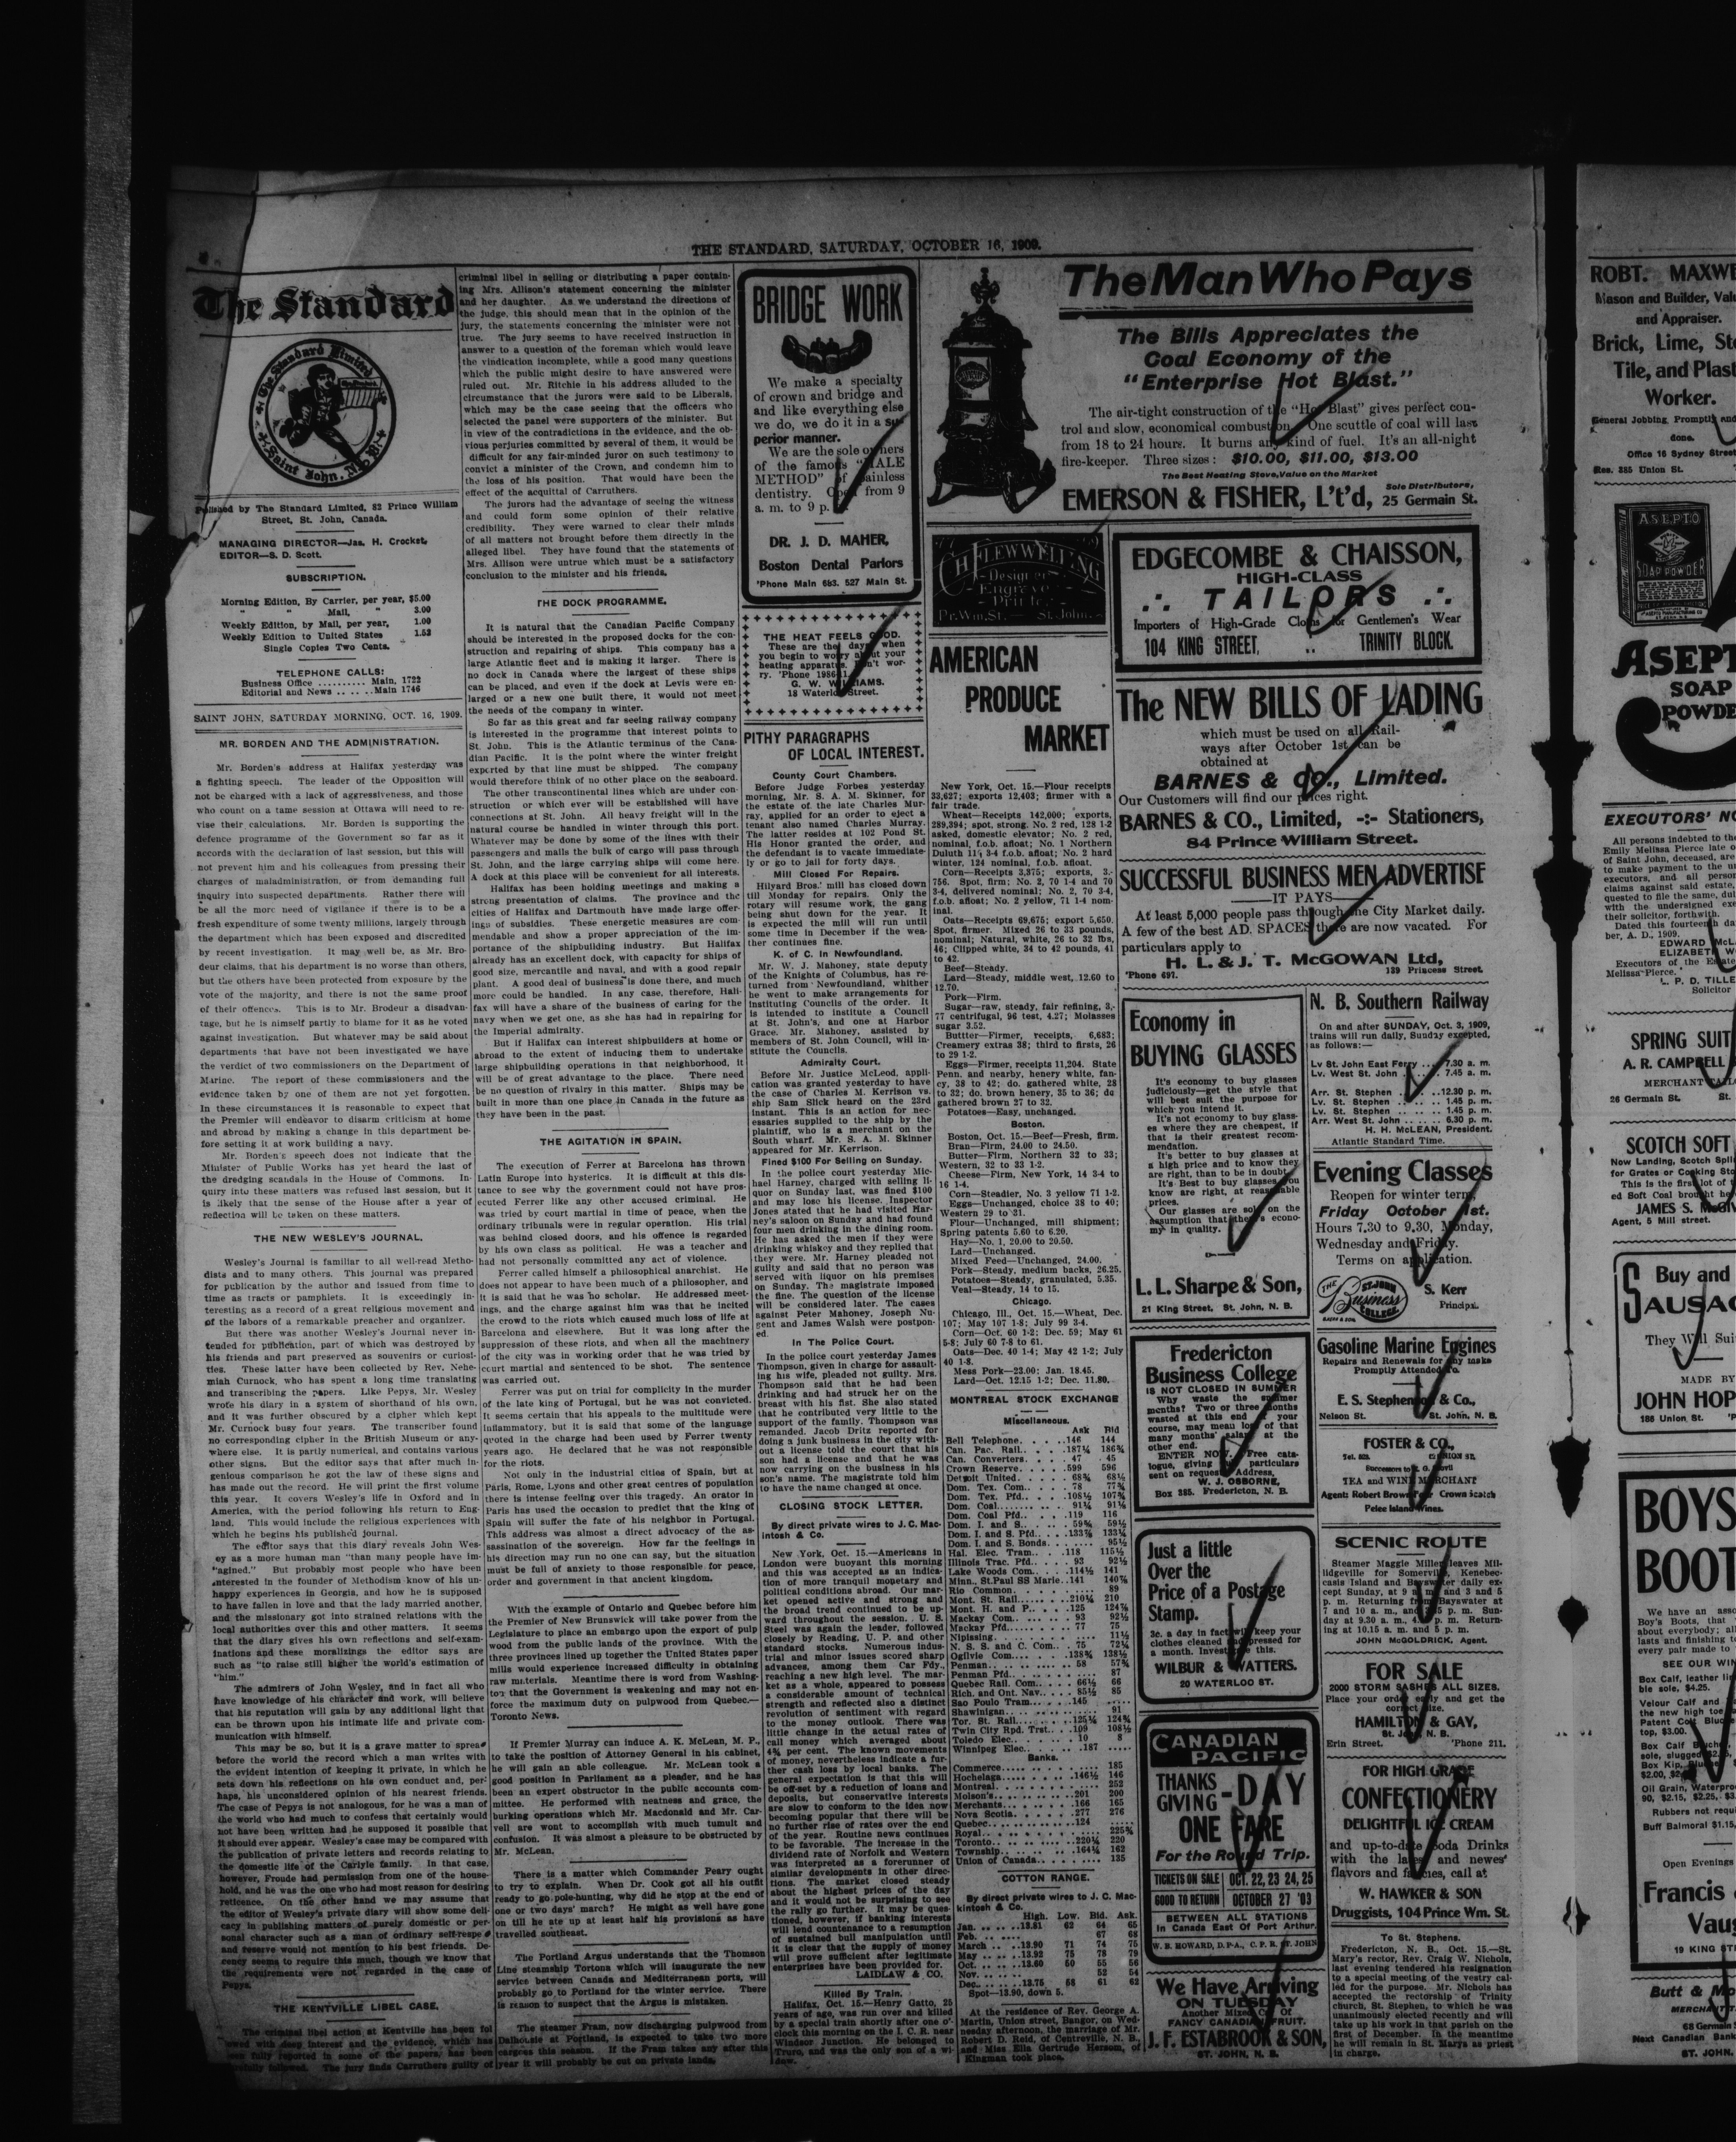 THE STANDARD, SATURDAY, OCTOBER 16, 1909.
The Standard
The Standard Limited
Saint John, N. B.
Published by The Standard Limited, 82 Prince William
Street, St. John, Canada.
MANAGING DIRECTOR—Jas. H. Crocket.
EDITOR—S. D. Scott.
SUBSCRIPTION.
Morning Edition, By Carrier, per year, $5.00
" " Mail, " 3.00
Weekly Edition, by Mail, per year, 1.00
Weekly Edition to United States 1.52
Single Copies Two Cents.
TELEPHONE CALLS:
Business Office .......... Main, 1722
Editorial and News ...... Main 1746
SAINT JOHN, SATURDAY MORNING, OCT. 16, 1909.
MR. BORDEN AND THE ADMINISTRATION.
Mr. Borden's address at Halifax yesterday was
a fighting speech. The leader of the Opposition will
not be charged with a lack of aggressiveness, and those
who count on a tame session at Ottawa will need to re-
vise their calculations. Mr. Borden is supporting the
defence programme of the Government so far as it
accords with the declaration of last session, but this will
not prevent him and his colleagues from pressing their
charges of maladministration, or from demanding full
inquiry into suspected departments. Rather there will
be all the more need of vigilance if there is to be a
fresh expenditure of some twenty millions, largely through
the department which has been exposed and discredited
by recent investigation. It may well be, as Mr. Bro-
deur claims, that his department is no worse than others,
but the others have been protected from exposure by the
vote of the majority, and there is not the same proof
of their offences. This is to Mr. Brodeur a disadvan-
tage, but he is himself partly to blame for it as he voted
against investigation. But whatever may be said about
departments that have not been investigated we have
the verdict of two commissioners on the Department of
Marine. The report of these commissioners and the
evidence taken by one of them are not yet forgotten.
In these circumstances it is reasonable to expect that
the Premier will endeavor to disarm criticism at home
and abroad by making a change in this department be-
fore setting it at work building a navy.
Mr. Borden's speech does not indicate that the
Minister of Public Works has yet heard the last of
the dredging scandals in the House of Commons. In-
quiry into these matters was refused last session, but it
is likely that the sense of the House after a year of
reflection will be taken on these matters.
THE NEW WESLEY'S JOURNAL.
Wesley's Journal is familiar to all well-read Metho-
dists and to many others. This journal was prepared
for publication by the author and issued from time to
time as tracts or pamphlets. It is exceedingly in-
teresting as a record of a great religious movement and
of the labors of a remarkable preacher and organizer.
But there was another Wesley's Journal never in-
tended for publication, part of which was destroyed by
his friends and part preserved as souvenirs or curiosi-
ties. These later have been collected by Rev. Nehe-
miah Curnock, who has spent a long time translating
and transcribing the papers. Like Pepys, Mr. Wesley
wrote his diary in a system of shorthand of his own,
and it was further obscured by a cipher which kept
Mr. Curnock busy four years. The transcriber found
no corresponding cipher in the British Museum or any-
where else. It is partly numerical, and contains various
other signs. But the editor says that after much in-
genious comparison he got the law of these signs and
has made out the record. He will print the first volume
this year. It covers Wesley's life in Oxford and in
America, with the period following his return to Eng-
land. This would include the religious experiences with
which he begins his published journal.
The editor says that this diary reveals John Wes-
ey as a more human man "than many people have im-
"agined." But probably most people who have been
interested in the founder of Methodism know of his un-
happy experiences in Georgia, and how he is supposed
to have fallen in love and that the lady married another,
and the missionary got into strained relations with the
local authorities over this and other matters. It seems
that the diary gives his own reflections and self-exam-
inations and these moralizings the editor says are
such as "to raise still higher the world's estimation of
"him."
The admirers of John Wesley, and in fact all who
have knowledge of his character and work, will believe
that his reputation will gain by any additional light that
can be thrown upon his intimate life and private com-
munication with himself.
This may be so, but it is a grave matter to spread
before the world the record which a man writes with
the evident intention of keeping it private, in which he
sets down his reflections on his own conduct and, per-
haps, his unconsidered opinion of his nearest friends.
The case of Pepys is not analogous, for he was a man of
the world who had much to confess that certainly would
not have been written had he supposed it possible that
it should ever appear. Wesley's case may be compared with
the publication of private letters and records relating to
the domestic life of the Carlyle family. In that case,
however, Froude had permission from one of the house-
hold, and he was the one who had most reason for desiring
reticence. On the other hand we may assume that
the editor of Wesley's private diary will show some deli-
cacy in publishing matters of purely domestic or per-
sonal character such as a man of ordinary self-respect
and reserve would not mention to his best friends. De-
cency seems to require this much, though we know that
the requirements were not regarded in the case of
Pepys.
THE KENTVILLE LIBEL CASE.
The criminal libel action at Kentville has been fol
lowed with deep interest and the evidence, which has
been fully reported in some of the papers, has been
carefully followed. The jury finds Carruthers guilty of
criminal libel in selling or distributing a paper contain-
ing Mrs. Allison's statement concerning the minister
and her daughter. As we understand the directions of
the judge, this should mean that in the opinion of the
jury, the statements concerning the minister were not
true. The jury seems to have received instruction in
answer to a question of the foreman which would leave
the vindication incomplete, while a good many questions
which the public might desire to have answered were
ruled out. Mr. Ritchie in his address alluded to the
circumstance that the jurors were said to be Liberals,
which may be the case seeing that the officers who
selected the panel were supporters of the minister. But
in view of the contradictions in the evidence, and the ob-
vious perjuries committed by several of them, it would be
difficult for any fair-minded juror on such testimony to
convict a minister of the Crown, and condemn him to
the loss of his position. That would have been the
effect of the acquittal of Carruthers.
The jurors had the advantage of seeing the witness
and could form some opinion of their relative
credibility. They were warned to clear their minds
of all matters not brought before them directly in the
alleged libel. They have found that the statements of
Mrs. Allison were untrue which must be a satisfactory
conclusion to the minister and his friends.
THE DOCK PROGRAMME.
It is natural that the Canadian Pacific Company
should be interested in the proposed docks for the con-
struction and repairing of ships. This company has a
large Atlantic fleet and is making it larger. There is
no dock in Canada where the largest of these ships
can be placed, and even if the dock at Levis were en-
larged or a new one built there, it would not meet
the needs of the company in winter.
So far as this great and far seeing railway company
is interested in the programme that interest points to
St. John. This is the Atlantic terminus of the Cana-
dian Pacific. It is the point where the winter freight
exported by that line must be shipped. The company
would therefore think of no other place on the seaboard.
The other transcontinental lines which are under con-
struction or which ever will be established will have
connections at St. John. All heavy freight will in the
natural course be handled in winter through this port.
Whatever may be done by some of the lines with their
passengers and mails the bulk of cargo will pass through
St. John, and the large carrying ships will come here.
A dock at this place will be convenient for all interests.
Halifax has been holding meetings and making a
strong presentation of claims. The province and the
cities of Halifax and Dartmouth have made large offer-
ings of subsidies. These energetic measures are com-
mendable and show a proper appreciation of the im-
portance of the shipbuilding industry. But Halifax
already has an excellent dock, with capacity for ships of
good size, mercantile and naval, and with a good repair
plant. A good deal of business is done there, and much
more could be handled. In any case, therefore, Hali-
fax will have a share of the business of caring for the
navy when we get one, as she has had in repairing for
the Imperial admiralty.
But if Halifax can interest shipbuilders at home or
abroad to the extent of inducing them to undertake
large shipbuilding operations in that neighborhood, it
will be of great advantage to the place. There need
be no question of rivalry in this matter. Ships may be
built in more than one place in Canada in the future as
they have been in the past.
THE AGITATION IN SPAIN.
The execution of Ferrer at Barcelona has thrown
Latin Europe into hysterics. It is difficult at this dis-
tance to see why the government could not have pros-
ecuted Ferrer like any other accused criminal. He
was tried by court martial in time of peace, when the
ordinary tribunals were in regular operation. His trial
was behind closed doors, and his offence is regarded
by his own class as political. He was a teacher and
had not personally committed any act of violence.
Ferrer called himself a philosophical anarchist. He
does not appear to have been much of a philosopher, and
it is said that he was no scholar. He addressed meet-
ings, and the charge against him was that he incited
the crowd to the riots which caused much loss of life at
Barcelona and elsewhere. But it was long after the
suppression of these riots, and when all the machinery
of the city was in working order that he was tried by
court martial and sentenced to be shot. The sentence
was carried out.
Ferrer was put on trial for complicity in the murder
of the late king of Portugal, but he was not convicted.
It seems certain that his appeals to the multitude were
inflammatory, but it is said that some of the language
quoted in the charge had been used by Ferrer twenty
years ago. He declared that he was not responsible
for the riots.
Not only in the industrial cities of Spain, but at
Paris, Rome, Lyons and other great centres of population
there is intense feeling over this tragedy. An orator in
Paris has used the occasion to predict that the king of
Spain will suffer the fate of his neighbor in Portugal.
This address was almost a direct advocacy of the as-
sassination of the sovereign. How far the feelings in
his direction may run no one can say, but the situation
must be full of anxiety to those responsible for peace,
order and government in that ancient kingdom.
With the example of Ontario and Quebec before him
the Premier of New Brunswick will take power from the
Legislature to place an embargo upon the export of pulp
wood from the public lands of the province. With the
three provinces lined up together the United States paper
mills would experience increased difficulty in obtaining
raw materials. Meantime there is word from Washing-
ton that the Government is weakening and may not en-
force the maximum duty on pulpwood from Quebec.—
Toronto News.
If Premier Murray can induce A. K. McLean, M. P.,
to take the position of Attorney General in his cabinet,
he will gain an able colleague. Mr. McLean took a
good position in Parliament as a pleader, and he has
been an expert obstructor in the public accounts com-
mittee. He performed with neatness and grace, the
burking operations which Mr. Macdonald and Mr. Car-
vell are wont to accomplish with much tumult and
confusion. It was almost a pleasure to be obstructed by
Mr. McLean.
There is a matter which Commander Peary ought
to try to explain. When Dr. Cook got all his outfit
ready to go pole-hunting, why did he stop at the end of
one or two days' march? He might as well have gone
on till he ate up at least half his provisions as have
travelled southeast.
The Portland Argus understands that the Thomson
Line steamship Tortona which will inaugurate the new
service between Canada and Mediterranean ports, will
probably go to Portland for the winter service. There
is reason to suspect that the Argus is mistaken.
The steamer Fram, now discharging pulpwood from
Dalhousie at Portland, is expected to take two more
cargoes this season. If the Fram takes any after this
year it will probably be cut on private lands.
BRIDGE WORK
We make a specialty
of crown and bridge and
and like everything else
we do, we do it in a su-
perior manner.
We are the sole owners
of the famous "HALE
METHOD" of painless
dentistry. Open from 9
a. m. to 9 p.
DR. J. D. MAHER,
Boston Dental Parlors
'Phone Main 683. 527 Main St.
THE HEAT FEELS GOOD.
These are the days when
you begin to worry about your
heating apparatus. Don't wor-
ry. 'Phone 1986-11.
G. W. WILLIAMS.
18 Waterloo Street.
PITHY PARAGRAPHS
OF LOCAL INTEREST.
County Court Chambers.
Before Judge Forbes yesterday
morning, Mr. S. A. M. Skinner, for
the estate of the late Charles Mur-
ray, applied for an order to eject a
tenant also named Charles Murray.
The latter resides at 102 Pond St.
His Honor granted the order, and
the defendant is to vacate immediate-
ly or go to jail for forty days.
Mill Closed For Repairs.
Hilyard Bros.' mill has closed down
till Monday for repairs. Only the
rotary will resume work, the gang
being shut down for the year. It
is expected the mill will run until
some time in December if the wea-
ther continues fine.
K. of C. In Newfoundland.
Mr. W. J. Mahoney, state deputy
of the Knights of Columbus, has re-
turned from Newfoundland, whither
he went to make arrangements for
instituting Councils of the order. It
is intended to institute a Council
at St. John's, and one at Harbor
Grace. Mr. Mahoney, assisted by
members of St. John Council, will in-
stitute the Councils.
Admiralty Court.
Before Mr. Justice McLeod, appli-
cation was granted yesterday to have
the case of Charles M. Kerrison vs.
ship Sam Slick heard on the 23rd
instant. This is an action for nec-
essaries supplied to the ship by the
plaintiff, who is a merchant on the
South wharf. Mr. S. A. M. Skinner
appeared for Mr. Kerrison.
Fined $100 For Selling on Sunday.
In the police court yesterday Mic-
hael Harney, charged with selling li-
quor on Sunday last, was fined $100
and may lose his license. Inspector
Jones stated that he had visited Har-
ney's saloon on Sunday and had found
four men drinking in the dining room.
He has asked the men if they were
drinking whiskey and they replied that
they were. Mr. Harney pleaded not
guilty and said that no person was
served with liquor on his premises
on Sunday. The magistrate imposed
the fine. The question of the license
will be considered later. The cases
against Peter Mahoney, Joseph Nu-
gent and James Walsh were postpon-
ed.
In The Police Court.
In the police court yesterday James
Thompson, given in charge for assault-
ing his wife, pleaded not guilty. Mrs.
Thompson said that he had been
drinking and had struck her on the
breast with his fist. She also stated
that he contributed very little to the
support of the family. Thompson was
remanded. Jacob Dritz reported for
doing a junk business in the city with-
out a license told the court that his
son had a license and that he was
now carrying on the business in his
son's name. The magistrate told him
to have the name changed at once.
CLOSING STOCK LETTER.
By direct private wires to J. C. Mac-
intosh & Co.
New York, Oct. 15.—Americans in
London were buoyant this morning
and this was accepted as an indica-
tion of more tranquil monetary and
political conditions abroad. Our mar-
ket opened active and strong and
the broad trend continued to be up-
ward throughout the session. U. S.
Steel was again the leader, followed
closely by Reading, U. P. and other
standard stocks. Numerous indus-
trial and minor issues scored sharp
advances, among them Car Fdy.,
reaching a new high level. The mar-
ket as a whole, appeared to possess
a considerable amount of technical
strength and reflected also a distinct
revolution of sentiment with regard
to the money outlook. There was
little change in the actual rates of
call money which averaged about
4¾ per cent. The known movements
of money, nevertheless indicate a fur-
ther cash loss by local banks. The
general expectation is that this will
be off-set by a reduction of loans and
deposits, but conservative interests
are slow to conform to the idea now
becoming popular that there will be
no further rise of rates over the end
of the year. Routine news continues
to be favorable. The increase in the
dividend rate of Norfolk and Western
was interpreted as a forerunner of
similar developments in other direc-
tions. The market closed steady
about the highest prices of the day
and it would not be surprising to see
the rally go further. It may be ques-
tioned, however, if banking interests
will lend countenance to a resumption
of sustained bull manipulation until
it is clear that the supply of money
will prove sufficient after legitimate
enterprises have been provided for.
LAIDLAW & CO.
Killed By Train.
Halifax, Oct. 15.—Henry Gatto, 25
years of age, was run over and killed
by a special train shortly after one o'-
clock this morning on the I. C. R. near
Windsor Junction. He belonged to
Truro, and was the only son of a wi-
dow.
CH FLEWWELLING
Designer
Engraver
Printer
Pr. Wm. St. — St. John.
AMERICAN
PRODUCE
MARKET
New York, Oct. 15.—Flour receipts
33,627; exports 12,403; firmer with a
fair trade.
Wheat—Receipts 142,000; exports,
289,394; spot, strong. No. 2 red, 128 1-2
asked, domestic elevator; No. 2 red,
nominal, f.o.b. afloat; No. 1 Northern
Duluth 11¼ 3-4 f.o.b. afloat; No. 2 hard
winter, 124 nominal, f.o.b. afloat.
Corn—Receipts 3,375; exports, 3,-
756. Spot, firm; No. 2, 70 1-4 and 70
3-4, delivered nominal; No. 2, 70 3-4,
f.o.b. afloat; No. 2 yellow, 71 1-4 nom-
inal.
Oats—Receipts 69,675; export 5,650.
Spot, firmer. Mixed 26 to 33 pounds,
nominal; Natural, white, 26 to 32 lbs,
46; Clipped white, 34 to 42 pounds, 41
to 42.
Beef—Steady.
Lard—Steady, middle west, 12.60 to
12.70.
Pork—Firm.
Sugar—raw, steady, fair refining, 3.-
77 centrifugal, 96 test, 4.27; Molasses
sugar 3.52.
Buttter—Firmer, receipts, 6,683;
Creamery extras 38; third to firsts, 26
to 29 1-2.
Eggs—Firmer, receipts 11,204. State
Penn. and nearby, henery white, fan-
cy, 38 to 42; do. gathered white, 28
to 32; do. brown henery, 35 to 36; do
gathered brown 27 to 32.
Potatoes—Easy, unchanged.
Boston.
Boston, Oct. 15.—Beef—Fresh, firm.
Bran—Firm, 24.00 to 24.50.
Butter—Firm, Northern 32 to 33;
Western, 32 to 33 1-2.
Cheese—Firm, New York, 14 3-4 to
16 1-4.
Corn—Steadier, No. 3 yellow 71 1-2.
Eggs—Unchanged, choice 38 to 40;
Western 29 to 31.
Flour—Unchanged, mill shipment;
Spring patents 5.60 to 6.20.
Hay—No. 1, 20.00 to 20.50.
Lard—Unchanged.
Mixed Feed—Unchanged, 24.00.
Pork—Steady, medium backs, 26.25.
Potatoes—Steady, granulated, 5.35.
Veal—Steady, 14 to 15.
Chicago.
Chicago, Ill., Oct. 15.—Wheat, Dec.
107; May 107 1-8; July 99 3-4.
Corn—Oct. 60 1-2; Dec. 59; May 61
5-8; July 60 7-8 to 61.
Oats—Dec. 40 1-4; May 42 1-2; July
40 1-8.
Mess Pork—23.00; Jan. 18.45.
Lard—Oct. 12.15 1-2; Dec. 11.80.
MONTREAL STOCK EXCHANGE
Miscellaneous.
Ask Bid
Bell Telephone. . . . .146 144
Can. Pac. Rail. . . . .187¼ 186¾
Can. Converters. . . . 47 45
Crown Reserve. . . . .599 596
Detroit United. . . . . 68¾ 68½
Dom. Tex. Com. . . . . 78 77¾
Dom. Tex. Pfd. . . . .108½ 107¾
Dom. Coal. . . . . . . 91¾ 91¼
Dom. Coal Pfd. . . . .119 116
Dom. I. and S. . . . . 59¾ 59½
Dom. I. and S. Pfd. . .133¾ 133¼
Dom. I. and S. Bonds. . . . . 95½
Hal. Elec. Tram. . . .118 115½
Illinois Trac. Pfd. . . 93 92½
Lake Woods Com. . . .114½ 141
Minn., St. Paul SS Marie. .141 140⅞
Rio Common . . . . . . . 89
Mont. St. Rail. . . . .210¼ 210
Mont. H. and P. . . . .125 124⅞
Mackay Com. . . . . . 93 92½
Mackay Pfd. . . . . . 77 75
Nipissing. . . . . . . . 11½
N. S. S. and C. Com. . . 75 72¼
Ogilvie Com. . . . . .138¾ 138½
Penman. . . . . . . 58 57¾
Penman Pfd. . . . . . . 87
Quebec Rail. Com. . . . 66½ 66
Rich. and Ont. Nav. . . . 85½ 85
Sao Paulo Tram. . . . .145
Shawinigan. . . . . . . 91
Tor. St. Rail. . . . .125¼ 124¾
Twin City Rpd. Trst. . .109 108½
Toledo Elec. . . . . . 10 8
Winnipeg Elec. . . . .187
Banks.
Commerce. . . . . . . 185
Hochelaga. . . . . .146½ 146
Montreal. . . . . . . 252
Molson's. . . . . .201 200
Merchants. . . . . .166 165
Nova Scotia. . . . .277 276
Quebec. . . . . . .124
Royal. . . . . . . 225¾
Toronto. . . . . .220¼ 220
Township. . . . . .164¼ 162
Union of Canada. . . . . 135
COTTON RANGE.
By direct private wires to J. C. Mac-
kintosh & Co.
High. Low. Bid. Ask.
Jan. .. .. ..13.81 62 64 65
Feb. .. .. .. 67 68
March .. ..13.90 71 74 75
May .. .. ..13.92 75 78 79
Oct. .. .. ..13.60 50 55 56
Nov. .. .. .. 52 54
Dec. .. .. ..13.75 58 61 62
Spot—13.90, down 5.
At the residence of Rev. George A.
Martin, Union street, Bangor, on Wed-
nesday afternoon, the marriage of Mr.
Robert D. Reid, of Centreville, N. B.,
and Miss Ella Gertrude Hersom, of
Kingman took place.
The Man Who Pays
The Bills Appreciates the
Coal Economy of the
"Enterprise Hot Blast."
The air-tight construction of the "Hot Blast" gives perfect con-
trol and slow, economical combustion. One scuttle of coal will last
from 18 to 24 hours. It burns any kind of fuel. It's an all-night
fire-keeper. Three sizes: $10.00, $11.00, $13.00
The Best Heating Stove, Value on the Market
EMERSON & FISHER, L't'd,
Sole Distributors,
25 Germain St.
EDGECOMBE & CHAISSON,
HIGH-CLASS
TAILORS
Importers of High-Grade Cloths for Gentlemen's Wear
104 KING STREET, .. TRINITY BLOCK.
The NEW BILLS OF LADING
which must be used on all Rail-
ways after October 1st can be
obtained at
BARNES & CO., Limited.
Our Customers will find our prices right.
BARNES & CO., Limited, -:- Stationers,
84 Prince William Street.
SUCCESSFUL BUSINESS MEN ADVERTISE
IT PAYS
At least 5,000 people pass through the City Market daily.
A few of the best AD. SPACES there are now vacated. For
particulars apply to
H. L. & J. T. McGOWAN Ltd,
'Phone 697. 139 Princess Street.
Economy in
BUYING GLASSES
It's economy to buy glasses
judiciously—get the style that
will best suit the purpose for
which you intend it.
It's not economy to buy glass-
es where they are cheapest, if
that is their greatest recom-
mendation.
It's better to buy glasses at
a high price and to know they
are right, than to be in doubt.
It's Best to buy glasses you
know are right, at reasonable
prices.
Our glasses are sold on the
assumption that there's econo-
my in quality.
L. L. Sharpe & Son,
21 King Street, St. John, N. B.
Fredericton
Business College
IS NOT CLOSED IN SUMMER
Why waste the summer
months? Two or three months
wasted at this end of your
course, may mean loss of that
many months' salary at the
other end.
ENTER NOW. Free cata-
logue, giving full particulars
sent on request. Address,
W. J. OSBORNE,
Box 385. Fredericton, N. B.
Just a little
Over the
Price of a Postage
Stamp.
3c. a day in fact will keep your
clothes cleaned and pressed for
a month. Investigate this.
WILBUR & WATTERS.
20 WATERLOO ST.
CANADIAN
PACIFIC
THANKS
GIVING - DAY
ONE FARE
For the Round Trip.
TICKETS ON SALE OCT. 22, 23 24, 25
GOOD TO RETURN OCTOBER 27 '09
BETWEEN ALL STATIONS
In Canada East Of Port Arthur.
W. B. HOWARD, D. P-A., C. P. R. ST. JOHN
We Have Arriving
ON TUESDAY
Another Mixed Car Of
FANCY CANADIAN FRUIT.
J. F. ESTABROOK & SON,
ST. JOHN, N. B.
N. B. Southern Railway
On and after SUNDAY, Oct. 3, 1909,
trains will run daily, Sunday excepted,
as follows:—
Lv St. John East Ferry ... 7.30 a. m.
Lv. West St. John . . . . 7.45 a. m.
Arr. St. Stephen . . . . .12.30 p. m.
Lv. St. Stephen . . . . . 1.45 p. m.
Lv. St. Stephen . . . . . 1.45 p. m.
Arr. West St. John . . . . 6.30 p. m.
H. H. McLEAN, President.
Atlantic Standard Time.
Evening Classes
Reopen for winter term,
Friday October 1st.
Hours 7.30 to 9.30, Monday,
Wednesday and Friday.
Terms on application.
THE ST. JOHN Business COLLEGE
S. Kerr
Principal.
Gasoline Marine Engines
Repairs and Renewals for any make
Promptly Attended to.
E. S. Stephenson & Co.,
Nelson St. St. John, N. B.
FOSTER & CO.,
TEA and WINE MERCHANT
Agent: Robert Brown Four Crown Scotch
Pelee Island Wines.
SCENIC ROUTE
Steamer Maggie Miller leaves Mil-
lidgeville for Somerville, Kennebec-
casis Island and Bayswater daily ex-
cept Sunday, at 9 a. m. and 3 and 5
p. m. Returning from Bayswater at
7 and 10 a. m., and 3.45 p. m. Sun-
day at 9.30 a. m., p. m. Return-
ing at 10.15 a. m. and 5 p. m.
JOHN McGOLDRICK, Agent.
FOR SALE
2000 STORM SASHES ALL SIZES.
Place your order early and get the
correct size.
HAMILTON & GAY,
St. John, N. B.
Erin Street. 'Phone 211.
FOR HIGH GRADE
CONFECTIONERY
DELIGHTFUL ICE CREAM
and up-to-date Soda Drinks
with the latest and newes'
flavors and fancies, call at
W. HAWKER & SON
Druggists, 104 Prince Wm. St.
To St. Stephens.
Fredericton, N. B., Oct. 15.—St.
Mary's rector, Rev. Craig W. Nichols,
last evening tendered his resignation
to a special meeting of the vestry cal-
led for the purpose. Mr. Nichols has
accepted the rectorship of Trinity
church, St. Stephen, to which he was
unanimously elected recently and will
take up his work in that parish on the
first of December. In the meantime
he will remain in St. Marys as priest
in charge.
ROBT. MAXWE
Mason and Builder, Valu
and Appraiser.
Brick, Lime, Sto
Tile, and Plast
Worker.
General Jobbing Promptly and
done.
Office 16 Sydney Street
Res. 385 Union St.
ASEPTO
SOAP POWDER
ASEPT
SOAP
POWDE
EXECUTORS' NO
All persons indebted to the
Emily Melissa Pierce late o
of Saint John, deceased, are
to make payment to the un
executors, and all person
claims against said estate,
quested to file the same, du
with the undersigned exe
their solicitor, forthwith.
Dated this fourteenth da
ber, A. D., 1909.
EDWARD McL
ELIZABETH W
Executors of the Estate
Melissa Pierce.
L. P. D. TILLE
Solicitor
SPRING SUIT
A. R. CAMPBELL
MERCHANT TAILO
26 Germain St. St.
SCOTCH SOFT
Now Landing, Scotch Spli
for Grates or Cooking Sto
This is the first lot of
ed Soft Coal brought he
JAMES S. McGIV
Agent, 5 Mill street.
Buy and
SAUSAG
They Will Sui
MADE BY
JOHN HOP
186 Union St. 'P
BOYS
BOOT
We have an asso
Boy's Boots, that
about everybody; all
lasts and finishing t
every pair made to
SEE OUR WIN
Box Calf, leather li
ble sole, $4.25.
Velour Calf and
the new high toe
Patent Colt Bluc
top, $3.00.
Box Calf Blucher,
sole, slugged $2.
Box Kip, Blucher
$2.00, $2.
Oil Grain, Waterproo
90, $2.15, $2.25, $3.
Rubbers not requ
Buff Balmoral $1.15,
Open Evenings
Francis
Vaug
19 KING ST
Butt & Mc
MERCHANT T
68 Germain S
Next Canadian Bank
ST. JOHN,